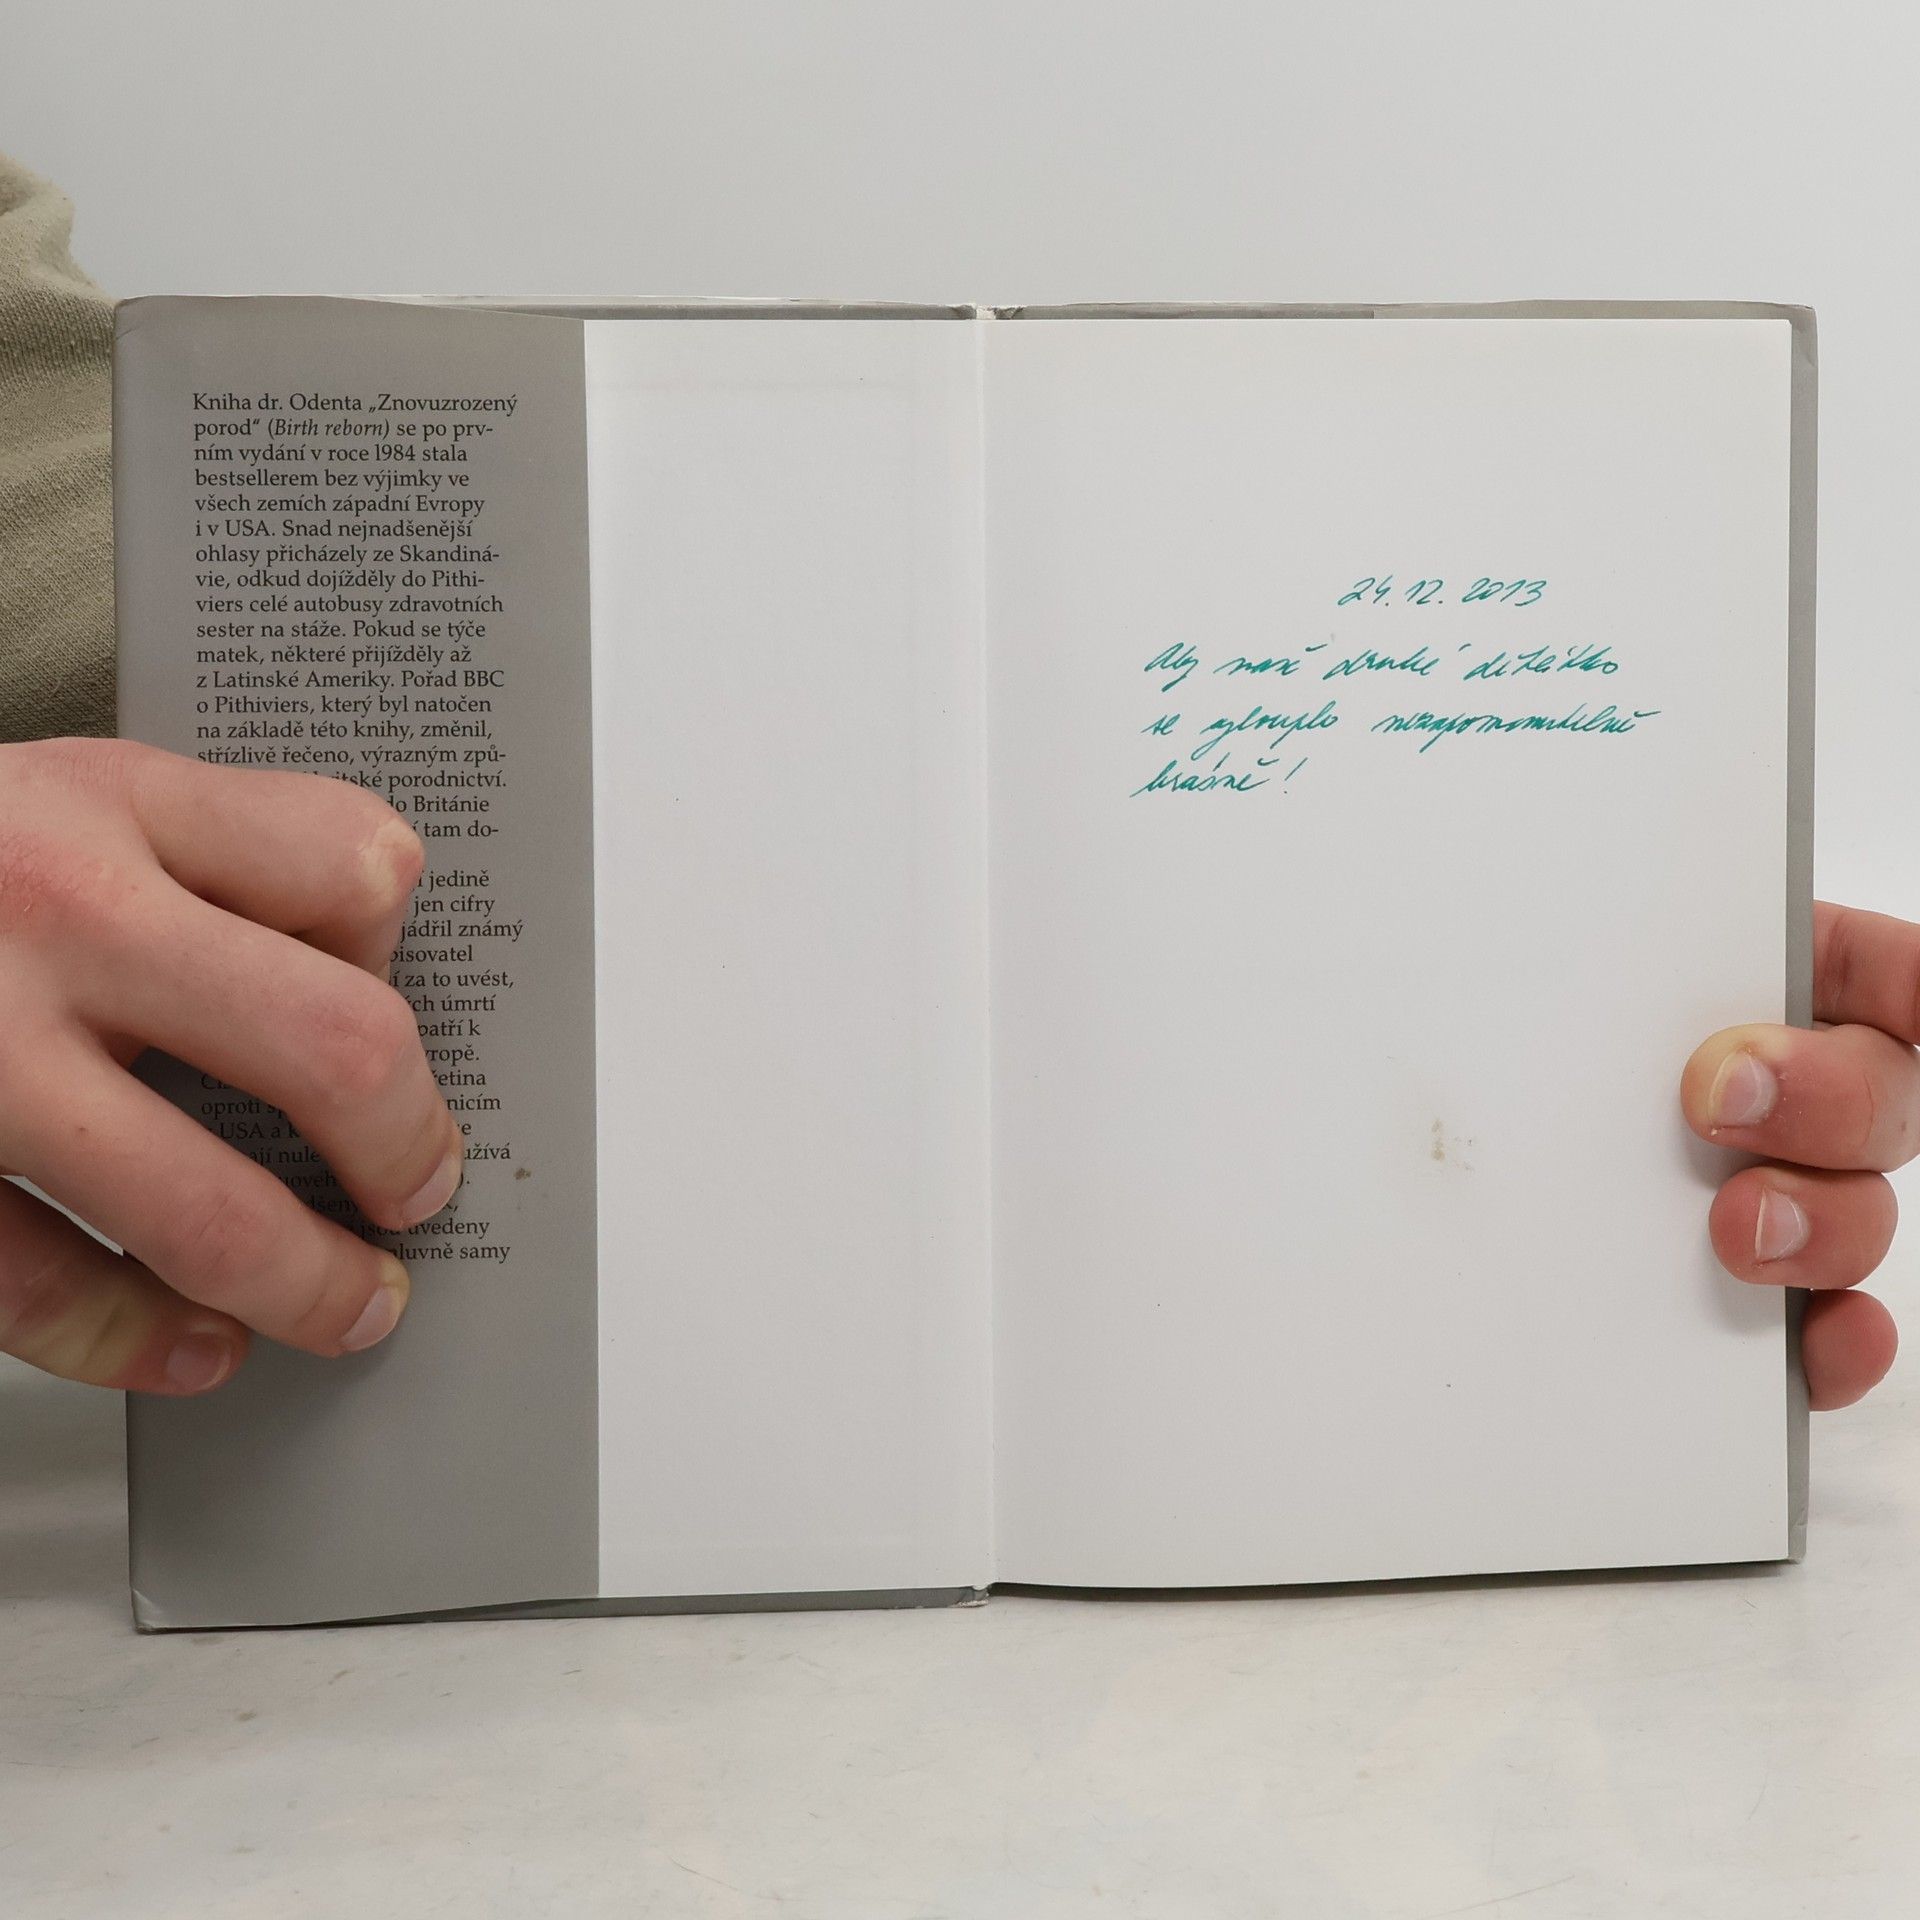 Kniha dr. Odenta „Znovuzrozený
porod“ (Birth reborn) se po prv-
ním vydání v roce 1984 stala
bestsellerem bez výjimky ve
všech zemích západní Evropy
i v USA. Snad nejnadšenější
ohlasy přicházely ze Skandiná-
vie, odkud dojížděly do Pithi-
viers celé autobusy zdravotních
sester na stáže. Pokud se týče
matek, některé přijížděly až
z Latinské Ameriky. Pořad BBC
o Pithiviers, který byl natočen
na základě této knihy, změnil,
střízlivě řečeno, výrazným způ-
porodnictví.
do Británie
tam do-
jedině
jen cifry
známý
za to uvést,
úmrtí
patří k
oproti
USA a
uvedeny
samy
24. 12. 2013
Aby naše druhé děťátko
se vylouplo nezapomenutelně
krásně!